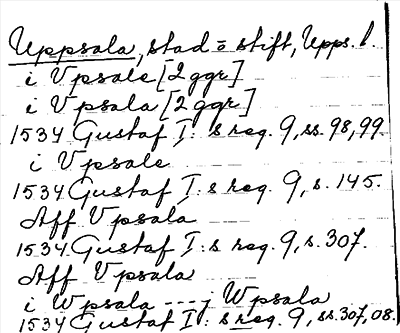 Uppsala, stad o stift, Upps. l.
i Vpsale [2 ggr]
i Vpsala [2 ggr]
1534 Gustaf I:s reg. 9, ss. 98, 99.
i Vpsale
1534 Gustaf I:s reg. 9, s. 145.
Aff Vpsala
1534 Gustaf I:s reg. 9, s. 307.
Aff Vpsala
i Wpsala --- j Wpsala
1534 Gustaf I:s reg. 9, ss. 307, 08.